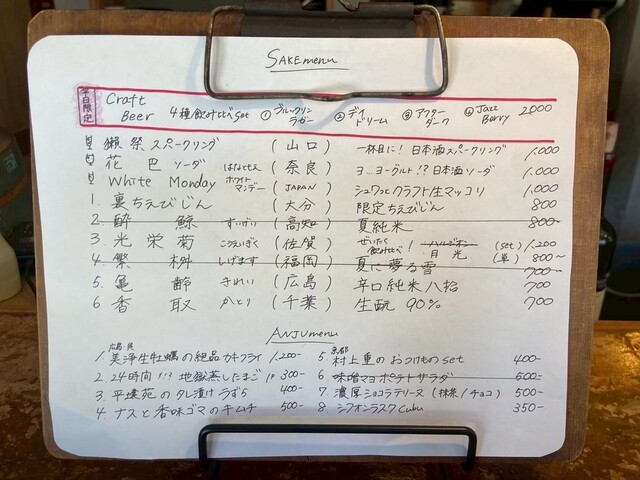 SAKE menu
平日限定
Craft Beer 4種飲み比べset ①ブルックリンラガー ②デイドリーム ③アフターダーク ④Jazz Berry 2000
獺祭スパークリング (山口) 一杯目に! 日本酒スパークリング 1,000
花巴ソーダ はなともえ (奈良) ヨ…ヨーグルト!? 日本酒ソーダ 1,000
White Monday ホワイトマンデー (JAPAN) シュワっとクラフト生マッコリ 1,000
1. 裏ちえびじん (大分) 限定ちえびじん 800
2. 酔鯨 すいげい (高知) 夏純米 800~
3. 光栄菊 こうえいぎく (佐賀) ぜいたく飲み比べ! ハルジオン 月光 (set) 1,200
(単) 800~
4. 繁桝 しげます (福岡) 夏に夢る雪 700~
5. 亀齢 きれい (広島) 辛口純米 八拾 700
6 香取 かとり (千葉) 生酛 90% 700
ANJU menu
広島・呉
1. 美浄生牡蠣の絶品カキフライ 1,200-
2. 24時間!?地獄蒸したまご 300-
3. 平壌苑のタレ漬けうずら 400-
4. ナスと香味ゴマのキムチ 500-
京都
5. 村上重のおつけものset 400-
6 味噌マヨポテトサラダ 500-
7. 濃厚ショコラテリーヌ (抹茶/チョコ) 500-
8. シフォンラスクcubu 350-